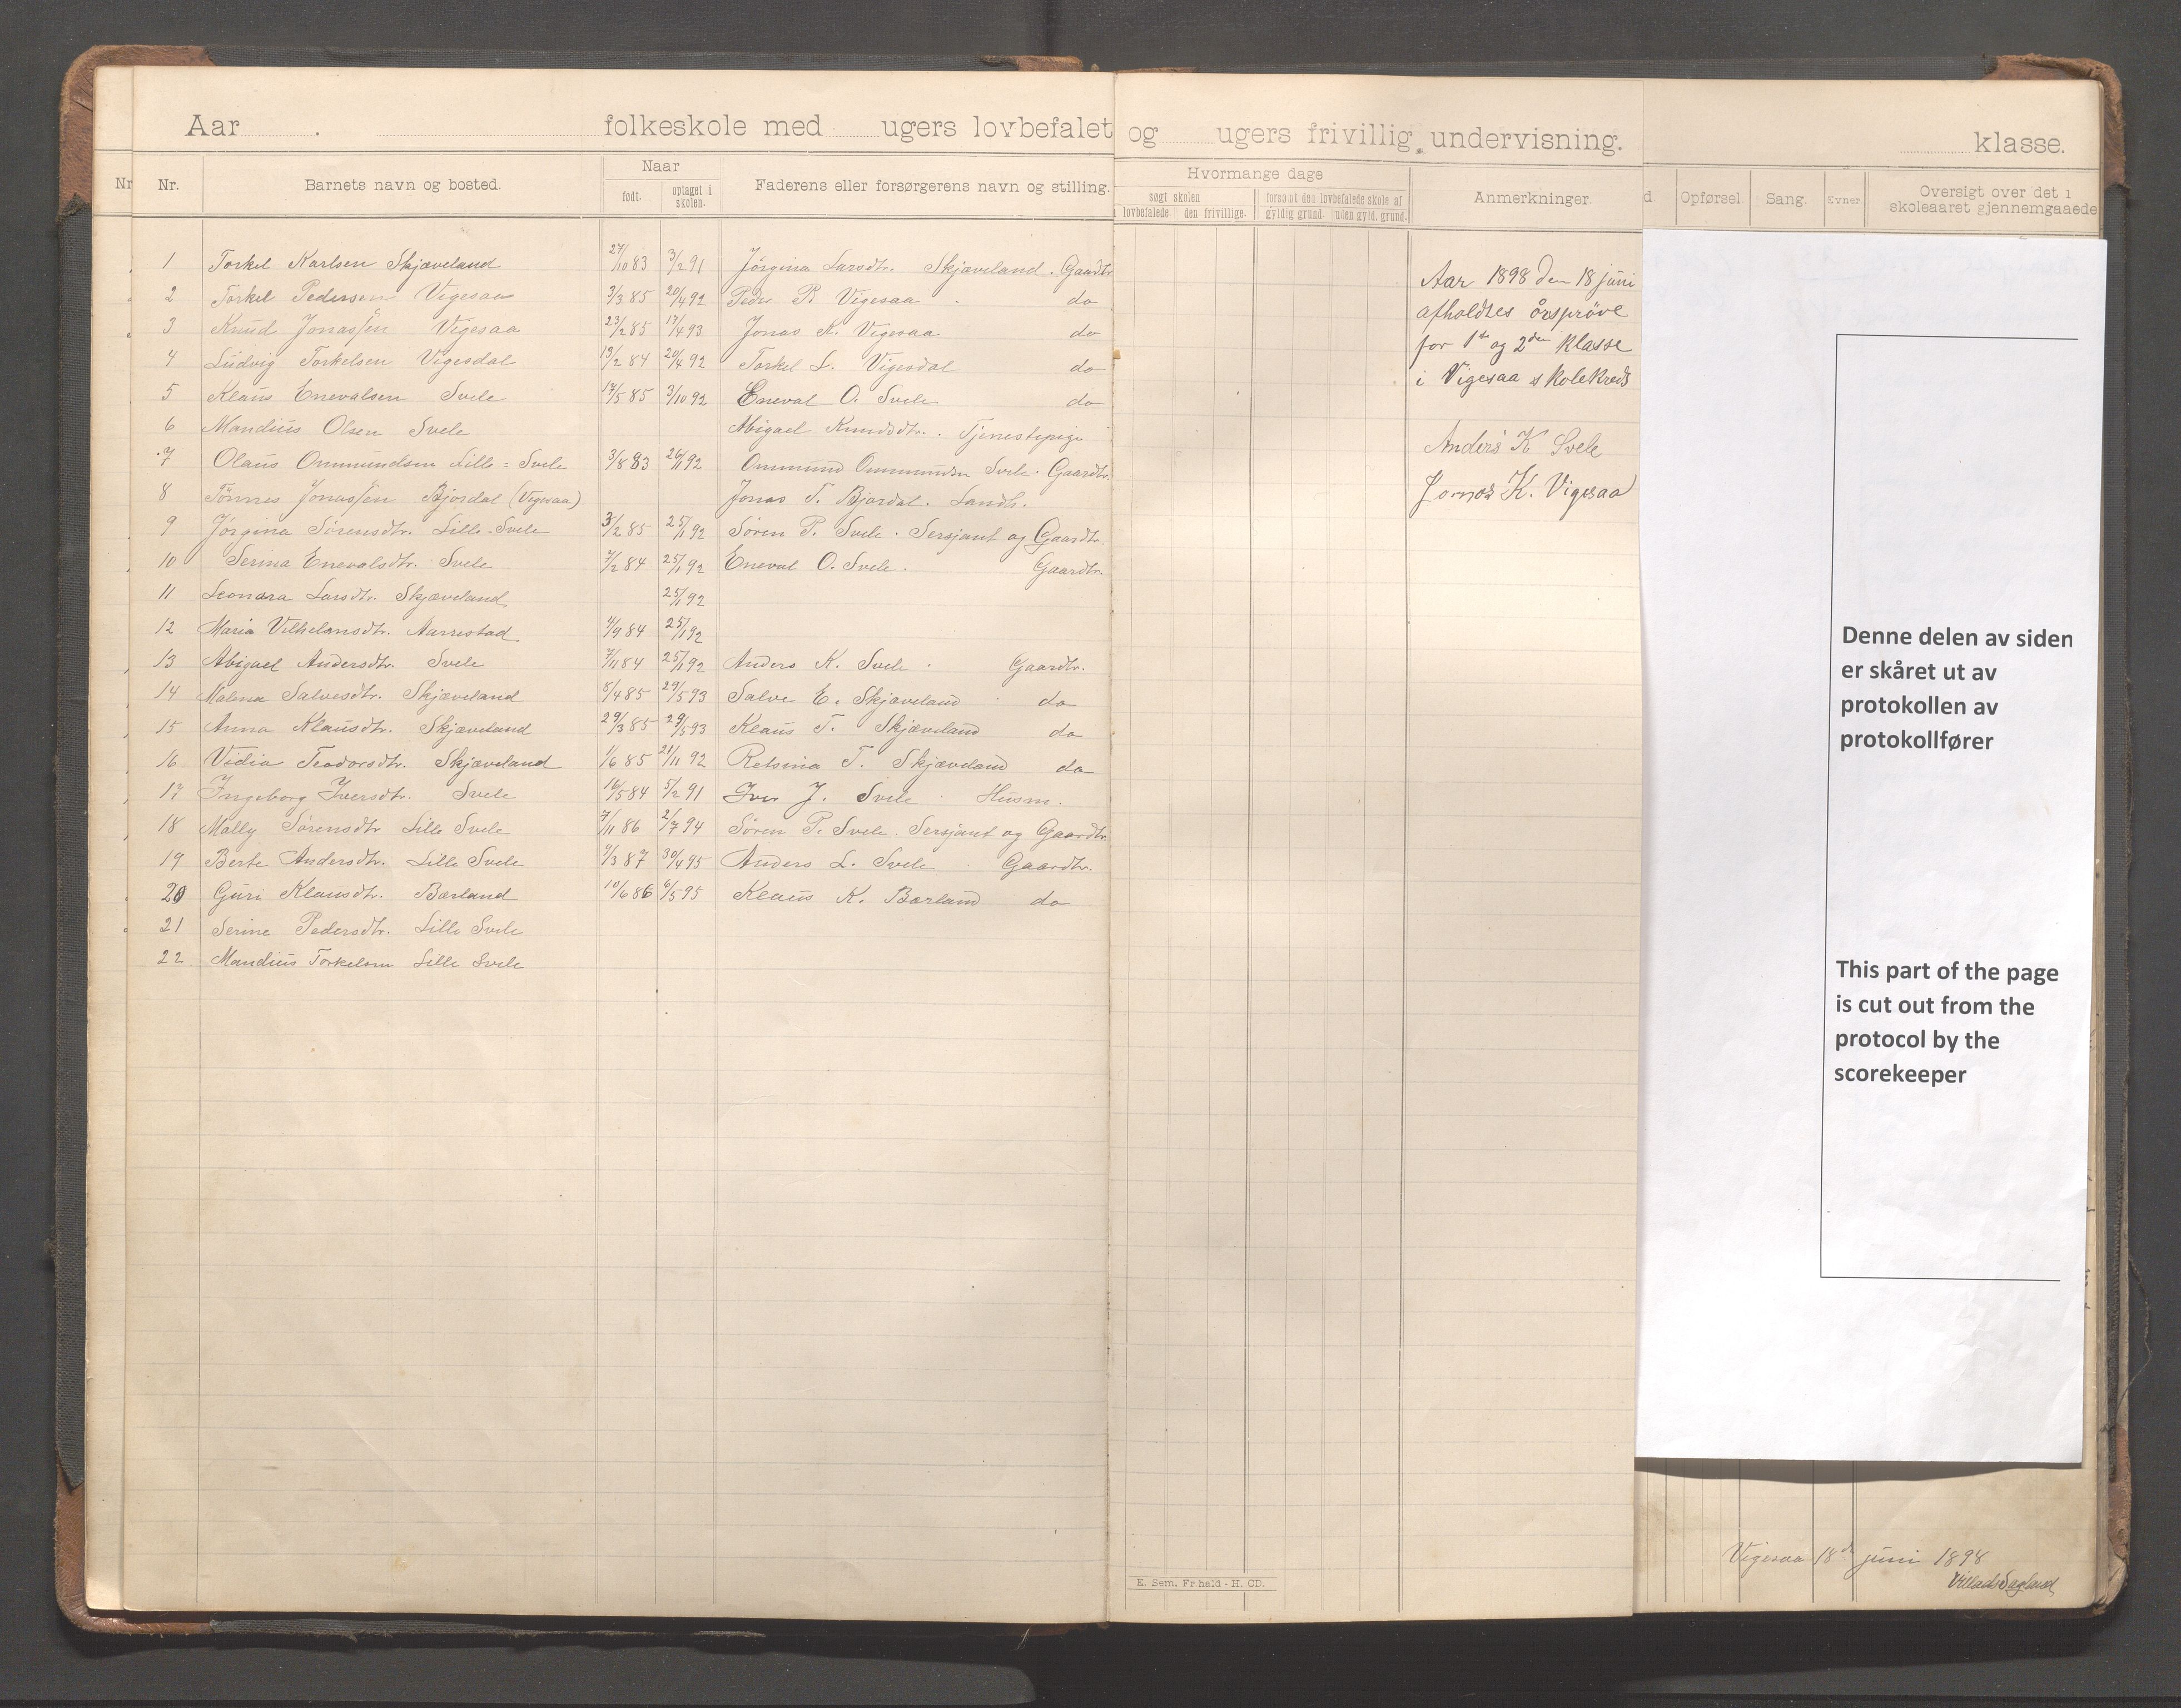 Aar . folkeskole med ugers lovbefalet og ugers frivillig undervisning. klasse.
Nr. Nr. Barnets navn og bosted. Naar født. optaget i skolen. Faderens eller forsørgerens navn og stilling. Hvormange dage søgt skolen lovbefalede den frivillige. forsømt den lovbefalede skole af gyldig grund. uden gyld. grund. Anmerkninger. Opførsel. Sang. Evner. Oversigt over det i skoleaaret gjennemgaaede
1 Torkel Karlsen Skjæveland 27/10 83 3/2 91 Jørgina Larsdtr. Skjæveland . Gaardtr
2 Torkel Pedersen Vigesaa 3/3 85 20/4 92 Peder P. Vigesaa . do
3 Knud Jonassen Vigesaa 23/2 85 17/4 93 Jonas K. Vigesaa do
4 Ludvig Torkelsen Vigesdal 13/2 84 20/4 92 Torkel L. Vigesdal do
5 Klaus Enevalsen Svele 17/5 85 3/10 92 Eneval O. Svele do
6 Mandius Olsen Svele Abigael Knudsdtr. Tjenestepige
7 Olaus Ommundsen Lille=Svele 3/8 83 26/1 92 Ommund Ommundsen Svele. Gaardtr.
8 Tönnes Jonassen Bjordal (Vigesaa) Jonas T. Bjordal. Landh.
9 Jörgina Sörensdtr. Lille-Svele 3/2 85 25/1 92 Sören P. Svele. Sersjant og Gaardtr.
10 Serina Enevalsdtr. Svele 7/2 84 25/1 92 Eneval O. Svele. Gaardtr.
11 Leonara Larsdtr. Skjæveland 25/1 92
12 Maria Vilhelmsdtr. Aarrestad 4/9 84 25/1 92
13 Abigael Andersdtr. Svele 7/11 84 25/1 92 Anders K. Svele . Gaardtr.
14 Malena Salvesdtr. Skjæveland 8/4 85 29/5 93 Salve E. Skjæveland do
15 Anna Klausdtr. Skjæveland 29/3 85 29/5 93 Klaus T. Skjæveland do
16 Vidia Teodorsdtr. Skjæveland 1/6 85 21/11 92 Retsina T. Skjæveland do
17 Ingeborg Iversdtr. Svele 16/5 84 5/2 91 Iver J. Svele . Husm.
18 Mally Sörensdtr Lille Svele 7/11 86 2/7 94 Sören P. Svele. Sersjant og Gaardtr.
19 Berte Andersdtr. Lille Svele 9/3 87 30/4 95 Anders L. Svele . Gaardtr.
20 Guri Klausdtr. Bærland 10/6 86 6/5 95 Klaus K. Bærland do
21 Serine Pedersdtr. Lille Svele
22 Mandius Torkelsen Lille Svele
Aar 1898 den 18 juni
afholdtes årspröve
for 1ste og 2den klasse
i Vigesaa skolekreds
Anders K Svele
Jonas K. Vigesaa
Denne delen av siden
er skåret ut av
protokollen av
protokollfører
This part of the page
is cut out from the
protocol by the
scorekeeper
E. Sem. Fr.hald - H. CD.
Vigesaa 18de juni 1898
Villads Sagland